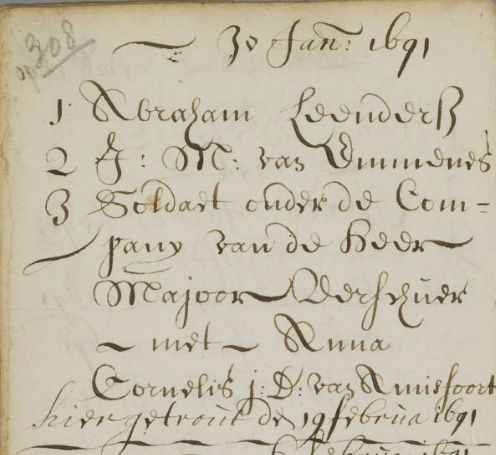 308
30 Jan: 1691
1 Abraham Leenderß
2 J: M: van Emmenes
3 Soldaet onder de Com=
pany van de Heer
Majoor Verschuer
met Anna
Cornelis j: D: van Amisfoort
hier getrout de 19 februa 1691
februa 1691